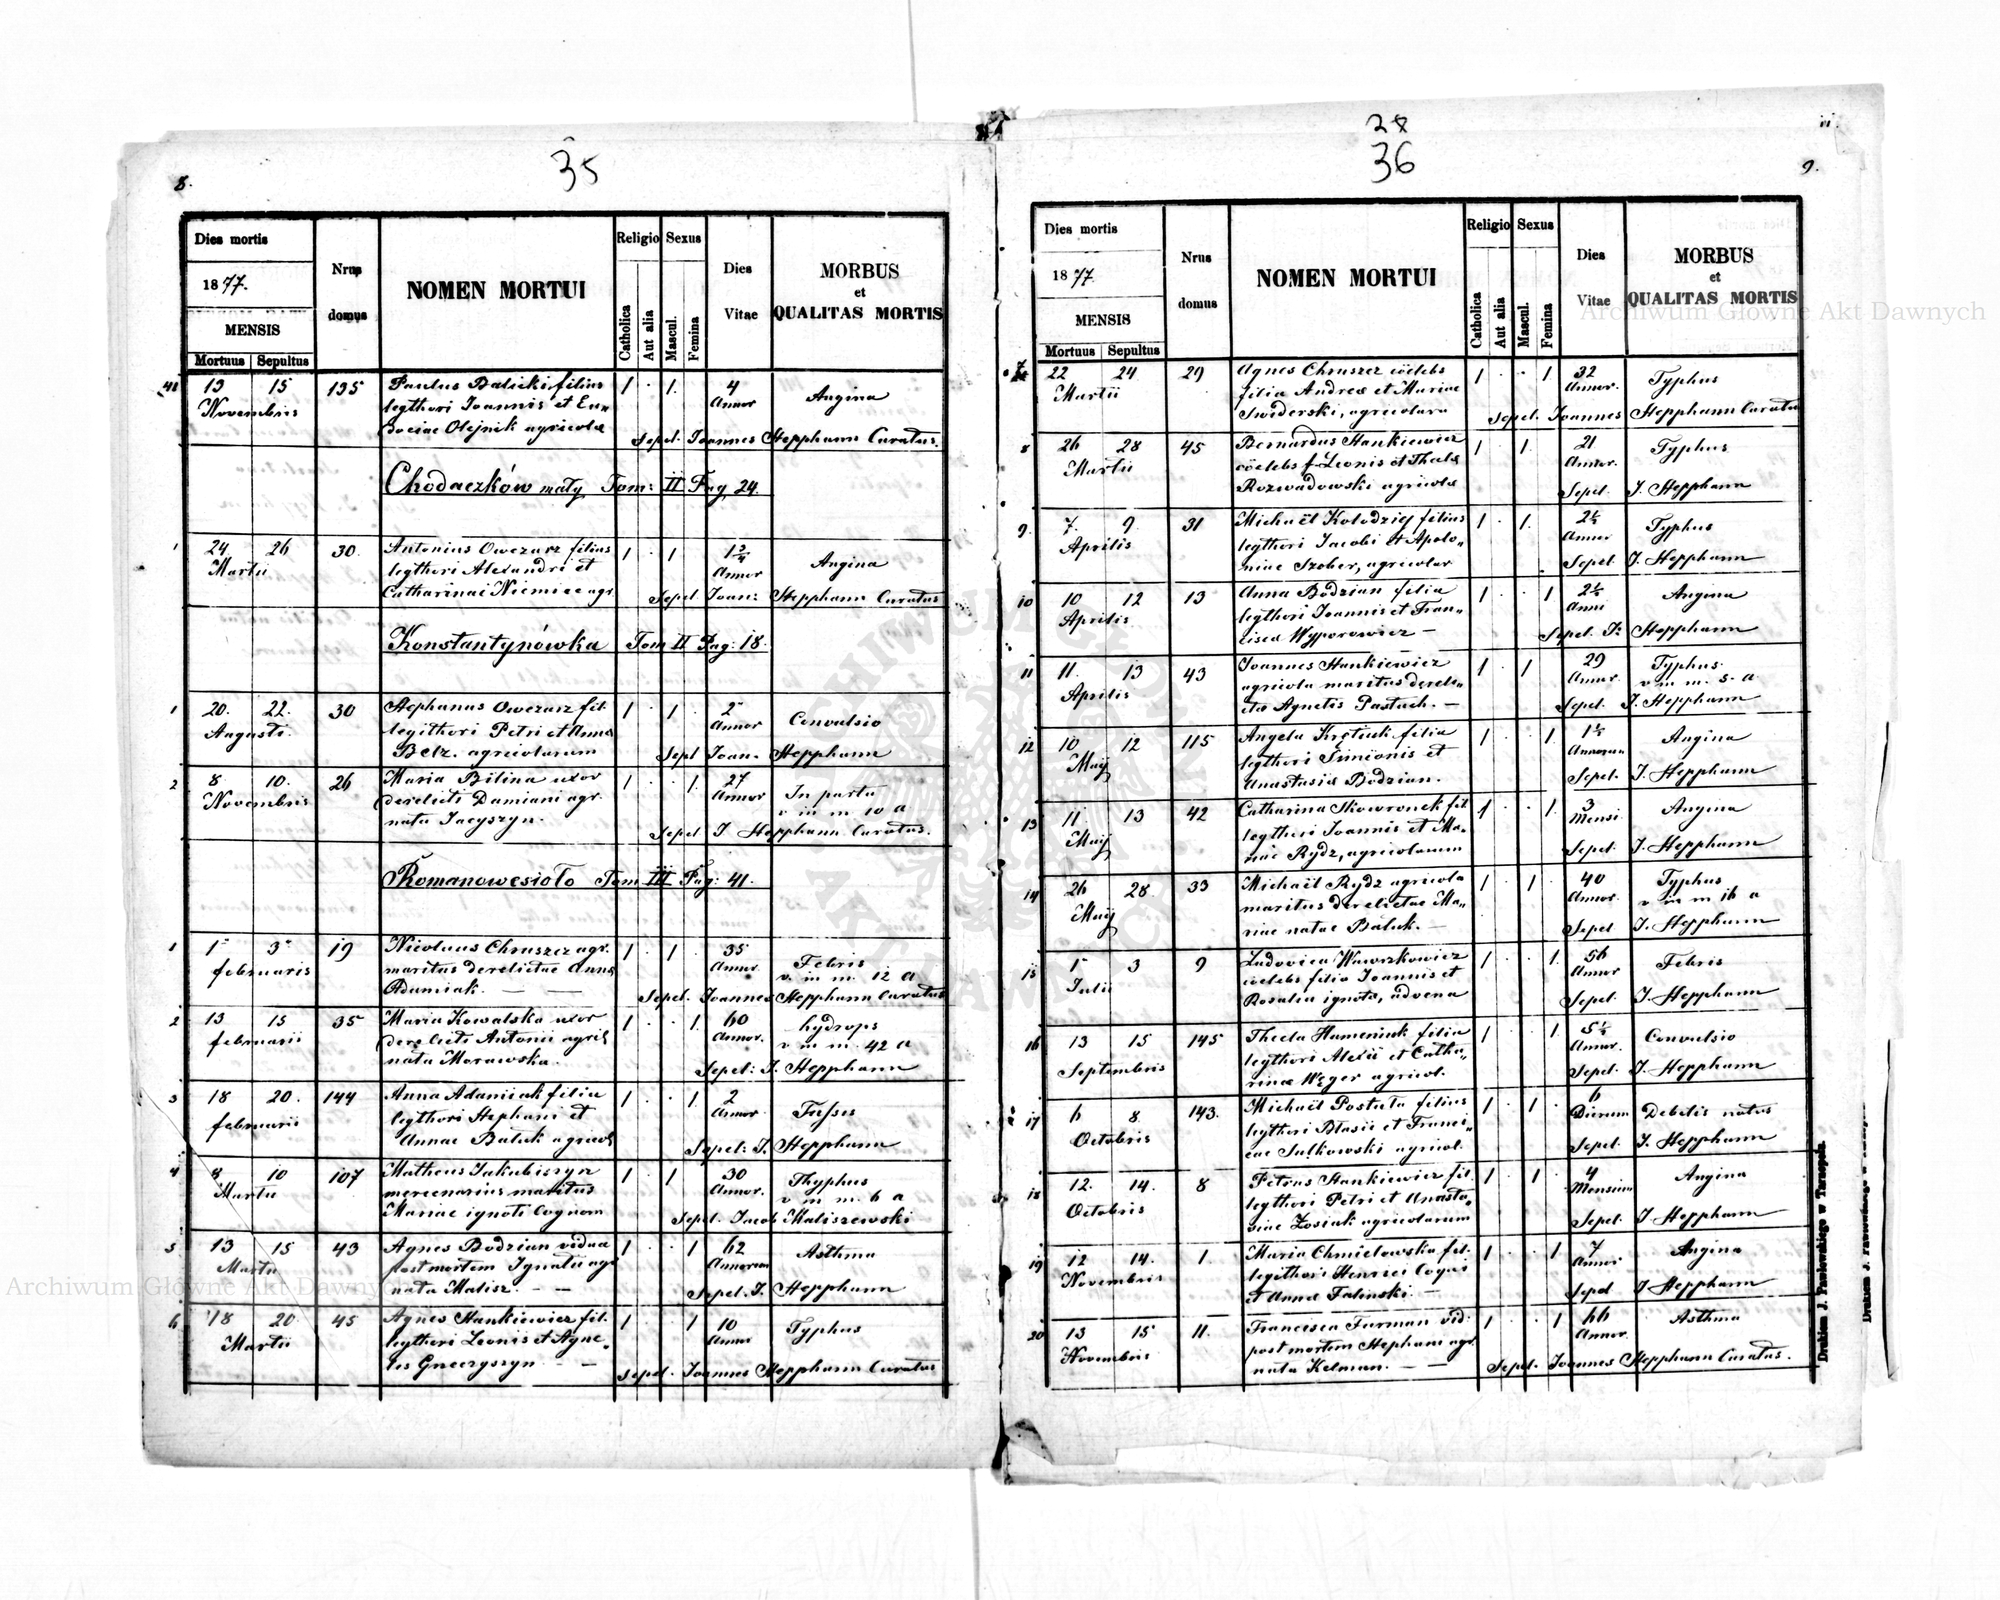 35
8.
Dies mortis
1877.
MENSIS
Mortuus Sepultus
Nrus domus
NOMEN MORTUI
Religio Sexus
Catholica
Aut alia
Mascul.
Femina
Dies Vitae
MORBUS
et
QUALITAS MORTIS
41 13 15 135 Paulus Balicki filius 1 · 1 · 4 Angina
Novembris legthori Joannis et Eu„ Annor
doeiae Olejnik agricolae
Sepel. Joannes Hepphann Curatus.
Chodaczków mały Tom: II Pag 24.
1 24 26 30. Antonius Owczarz filius 1 · 1 Angina
Martii legthori Alexandri et Annor
Catharinai Niemiec agr.
Sepel Joan: Hepphann Curatus
Konstantynówka Tom II Pag: 18.
1 20. 22. 30 Stephanus Owczarz fil. 1 · 1 · 2 Convulsio
Augusti. legithori Petri et Anna Annor
Belz. agricolarum
Sepel Joan. Hepphann
2 8 10. 26 Maria Bilina uxor 1 · · 1 27 In partu
Novembris derelicti Damiani agr. Annor v in m 10 a
nata Jacyszyn.
Sepel J Hepphann Curatus.
Romanowesioło Tom III Pag: 41.
1 1 3 19 Nicolaus Chruszcz agr. 1 · 1 · 35 Febris
februaris maritus derelictae Anna Annor. v. in m. 12 a
Adamiak. — —
Sepel. Joannes Hepphann Curatus
2 13 15 35 Maria Kowalska uxor 1 · · 1 60 hydrops
februarii derelicti Antonii agric Annor. v in m. 42 a
nata Morawska.
Sepel: J. Hepphann
3 18 20. 144 Anna Adamiak filia 1 · · 1 2 Tussis
februarii legthori Stephani et Annor
Annae Baluk agricol
Sepel: J. Hepphann
4 8 10 107 Matheus Jakubiszyn 1 · 1 30 Thyphus
Martii mercenarius maritus Annor. v in m. 6 a
Mariae ignoti Cognom
Sepel. Jacob Maliszewski
5 13 15 43 Agnes Bodzian vidua 1 · · 1 62 Asthma
Martii post mortem Ignatii agr Annorum
nata Malisz. — —
Sepel. J. Hepphann
6 18 20 45 Agnes Hankiewicz fil. 1 · · 1 10 Typhus
Martii legthori Leonis et Agne„ Annor
tis Gneczyszyn — —
Sepel. Joannes Hepphann Curatus
28
36
9.
Dies mortis
1877.
MENSIS
Mortuus Sepultus
Nrus domus
NOMEN MORTUI
Religio Sexus
Catholica
Aut alia
Mascul.
Femina
Dies Vitae
MORBUS
et
QUALITAS MORTIS
7 22 24 29 Agnes Chruszcz cölebs 1 · · 1 32 Typhus
Martii filia Andreae et Mariae Annor.
Swiderski, agricolara
Sepel. Joannes Hepphann Curatus
8 26 28 45 Bernardus Hankiewicz 1 · 1 · 21 Typhus
Martii cölebs f. Leonis et Thecla Annor.
Rozwadowski agricola
Sepel. J. Hepphann
9. 7. 9. 31 Michaël Kolodziej filius 1 · 1. 2½ Typhus
Aprilis legthori Jacobi et Apolo„ Annor
niae Szober, agricolar
Sepel J. Hepphann
10 10 12 13 Anna Bodzian filia 1 · · 1 2½ Angina
Aprilis legthori Joannis et Fran„ Anni
cisca Wyporowicz —
Sepel. J: Hepphann
11 11. 13 43 Joannes Hankiewicz 1 · 1 29 Typhus.
Aprilis agricola maritus derelic„ Annor. v in m. 5. a
tae Agnetis Pastuch. —
Sepel. J. Hepphann
12 10 12 115 Angela Krętiuk filia 1 · · 1. 1½ Angina
Maij legthori Simionis et Annorum
Anastasia Bodzian.
Sepel. J. Hepphann
13 11. 13 42 Catharina Skowronek fil 1 · · 1. 3 Angina
Maij legthori Joannis et Ma„ Mensi.
riae Rydz, agricolarum
Sepel: J. Hepphann
14 26 28. 33 Michaël Rydz agricola 1 · 1 · 40 Typhus
Maij maritus derelictae Ma„ Annor. v in m 16 a
riae natae Baluk. —
Sepel J. Hepphann
15 1 3 9 Ludovica Wawrzkowicz 1 · · 1. 56 Febris
Julii cölebs filia Joannis et Annor
Rosalia ignota, advena
Sepel: J. Hepphann
16 13 15 145 Thecla Humeniuk filia 1 · · 1. 5½ Convulsio
Septembris legthori Alexii et Catha„ Annor.
rinae Węger agricol.
Sepel. J. Hepphann
17 6 8 143. Michaël Postuła filius 1 · 1 · 6 Debilis natus
Octobris legthori Blasii et Franci„ Dierum
cae Sulkowski agricol.
Sepel. J. Hepphann
18 12. 14. 8 Petrus Hankiewicz fil. 1 · 1 4 Angina
Octobris legthori Petri et Anasta„ Mensium
siae Zosiuk agricolarum
Sepel: J Hepphann
19 12 14. 1. Maria Chmielowska fil. 1 · · 1 7 Angina
Novembris legithori Henrici Coqui Annor
et Anna Falinski. —
Sepel J Hepphann
20 13 15 11. Francisca Furman vid. 1 · · 1 66 Asthma
Novembris post mortem Stephani agr. Annor.
nata Kelman. — —
Sepel. Joannes Hepphann Curatus.
Drukiem J. Pawłowskiego w Tarnopolu.
Archiwum Główne Akt Dawnych
Archiwum Główne Akt Dawnych
ARCHIWUM GŁÓWNE AKT DAWNYCH